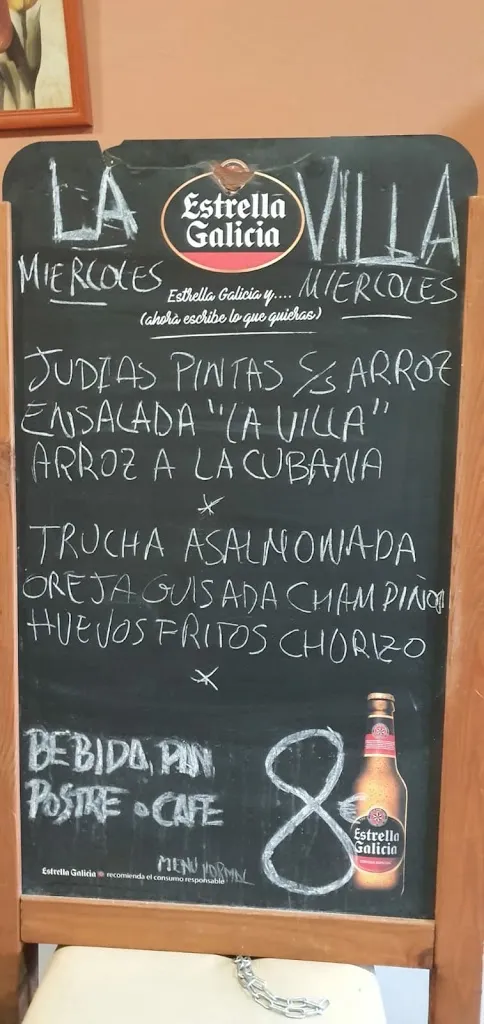 LA VILLA
Estrella
Galicia
MIERCOLES MIERCOLES
Estrella Galicia y....
(ahora escribe lo que quieras)
JUDIAS PINTAS S/S ARROZ
ENSALADA "LA VILLA"
ARROZ A LA CUBANA
*
TRUCHA ASALMONADA
OREJA GUISADA CHAMPIÑON
HUEVOS FRITOS CHORIZO
*
BEBIDA, PAN
POSTRE o CAFE
8€
Estrella
Galicia
MENU NORMAL
Estrella Galicia recomienda el consumo responsable